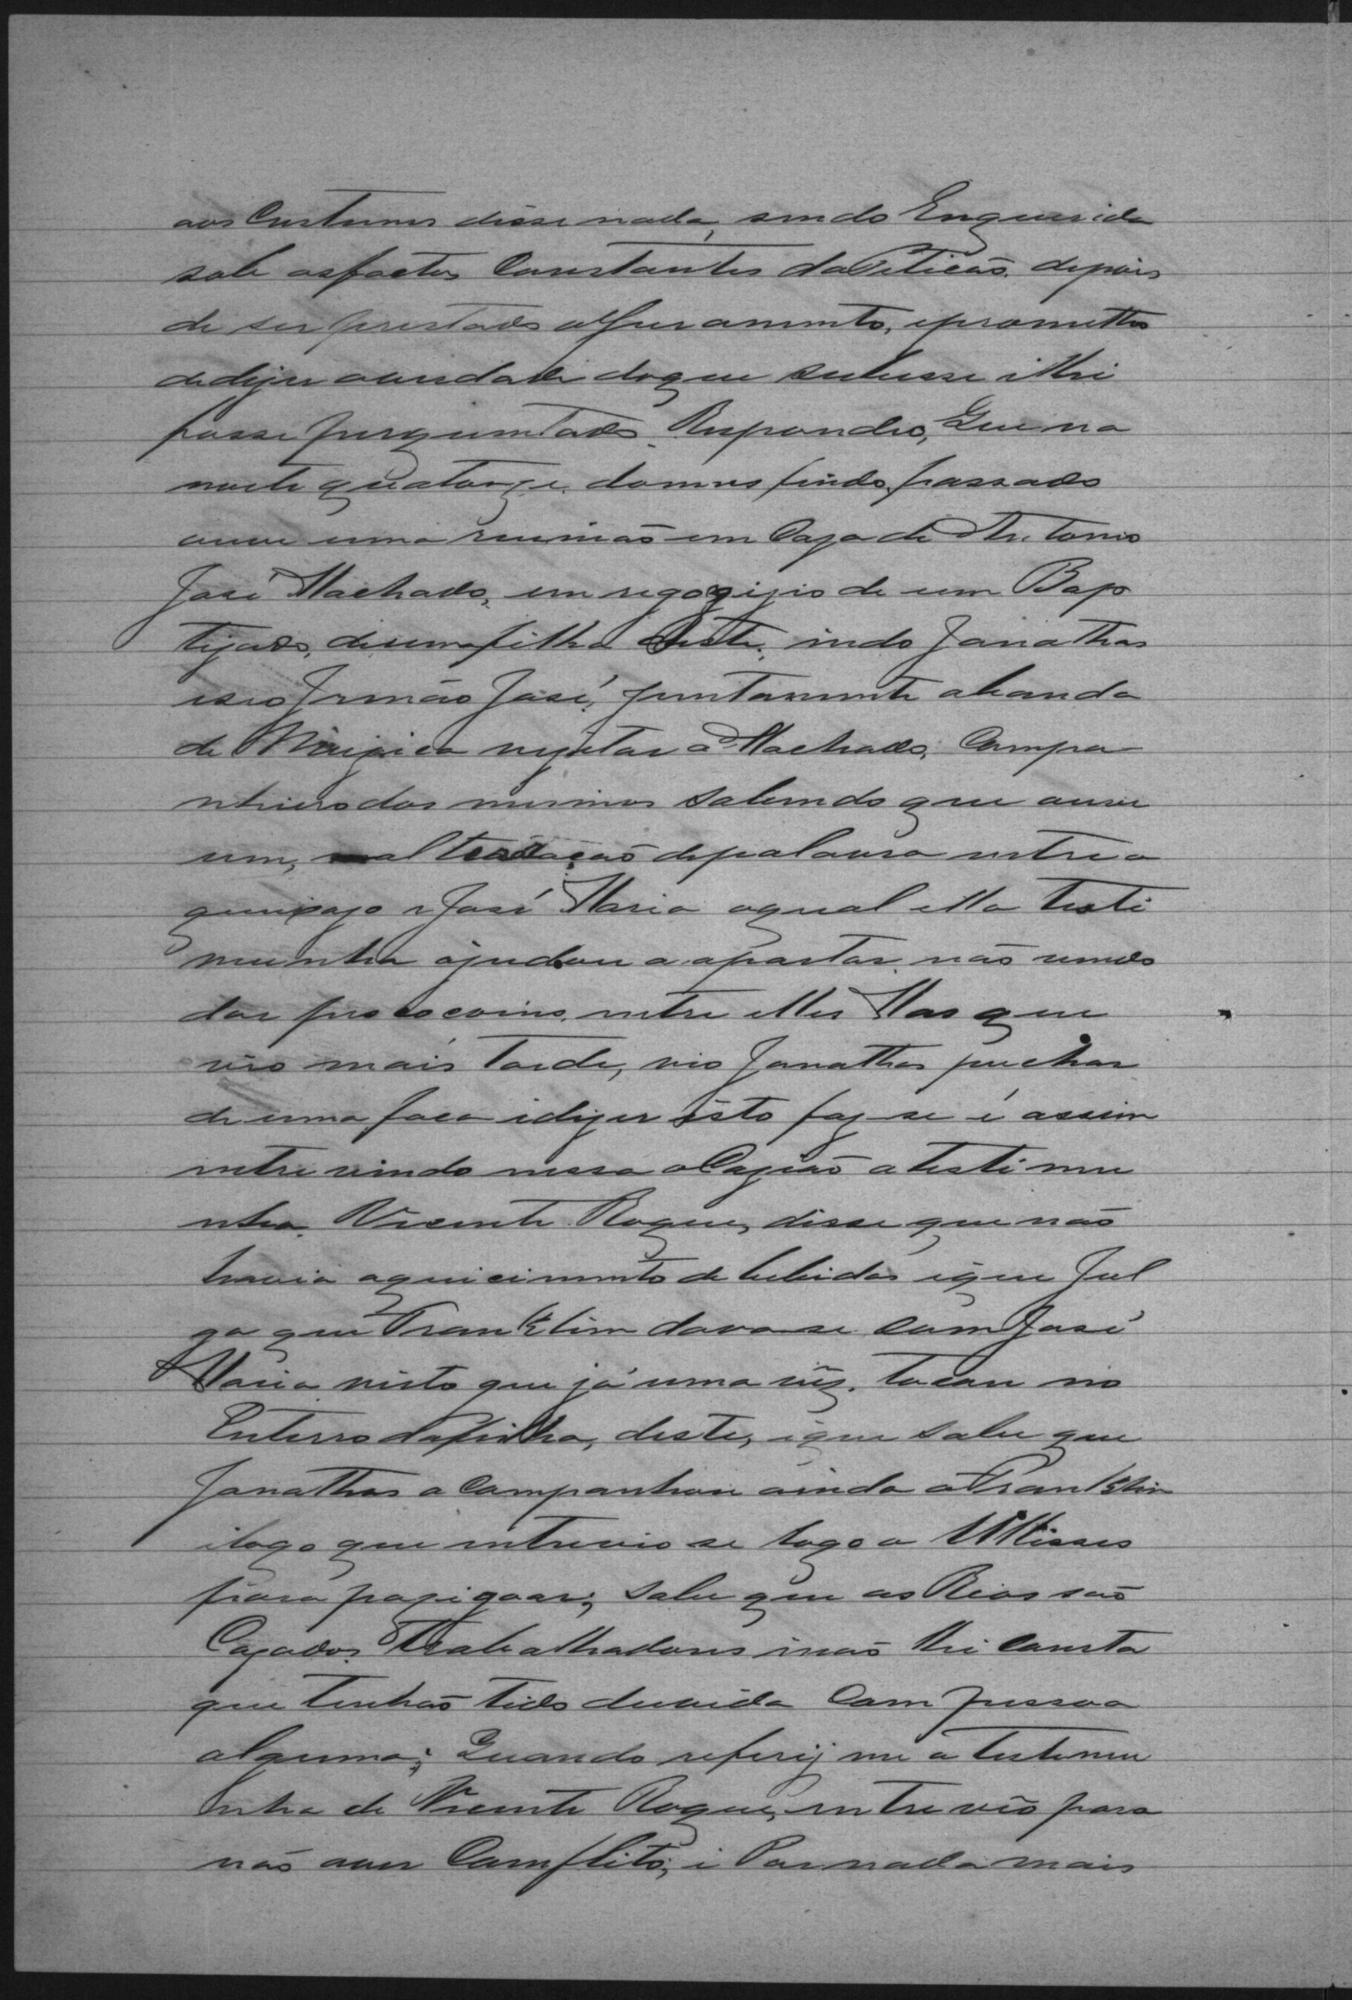 aos Custumes disse nada, sendo Enquerida
sobe osfactos Constantes daPeticaõ. depois
de ser prestado oJuramento, eprometteo
dedizer averdade doque subesse ilhi
fosse perguntado. Respondeo, Que na
noute quatorze. domes findo, passado
ouve uma reuniaõ em Caza de Antonio
José Machado, em regogizio de um Bap
tizado, deumafilha deste, indo Janathas
iseo Irmão José, juntamente abanda
de Muzica vizitar a Machado, Compa
nheirodos mesmos sabendo que ouve
um, alteraçaõ depalavra entre o
guipazo e José Maria aqual ella teste
munha ajudou a apartar, naõ vendo
dar
vio mais tarde, vio Janathas puchar
de uma faca idizer isto faz se é assim
entrevindo nessa oCaziaõ atestemu
nha. Vicente Roque, disse que naõ
havia aquicimento de bebidas ique Jul
ga que Franklim davase com José
Maria visto que já uma vez. tocou no
Enterro dafilha, deste, ique sabe que
Janathas acompanhou ainda a Franklin
ilogo que entrevio se logo a Ullisses
para pazigoar; sabe que os Reos saõ
Cazados, trabalhadores inaõ lhi Consta
que tenhaõ tido duvida Com pessoa
alguma; Quando referiz me a testemu
nha de Vicente Roque, entrevio para
naõ aver Comflito, i Por nada mais